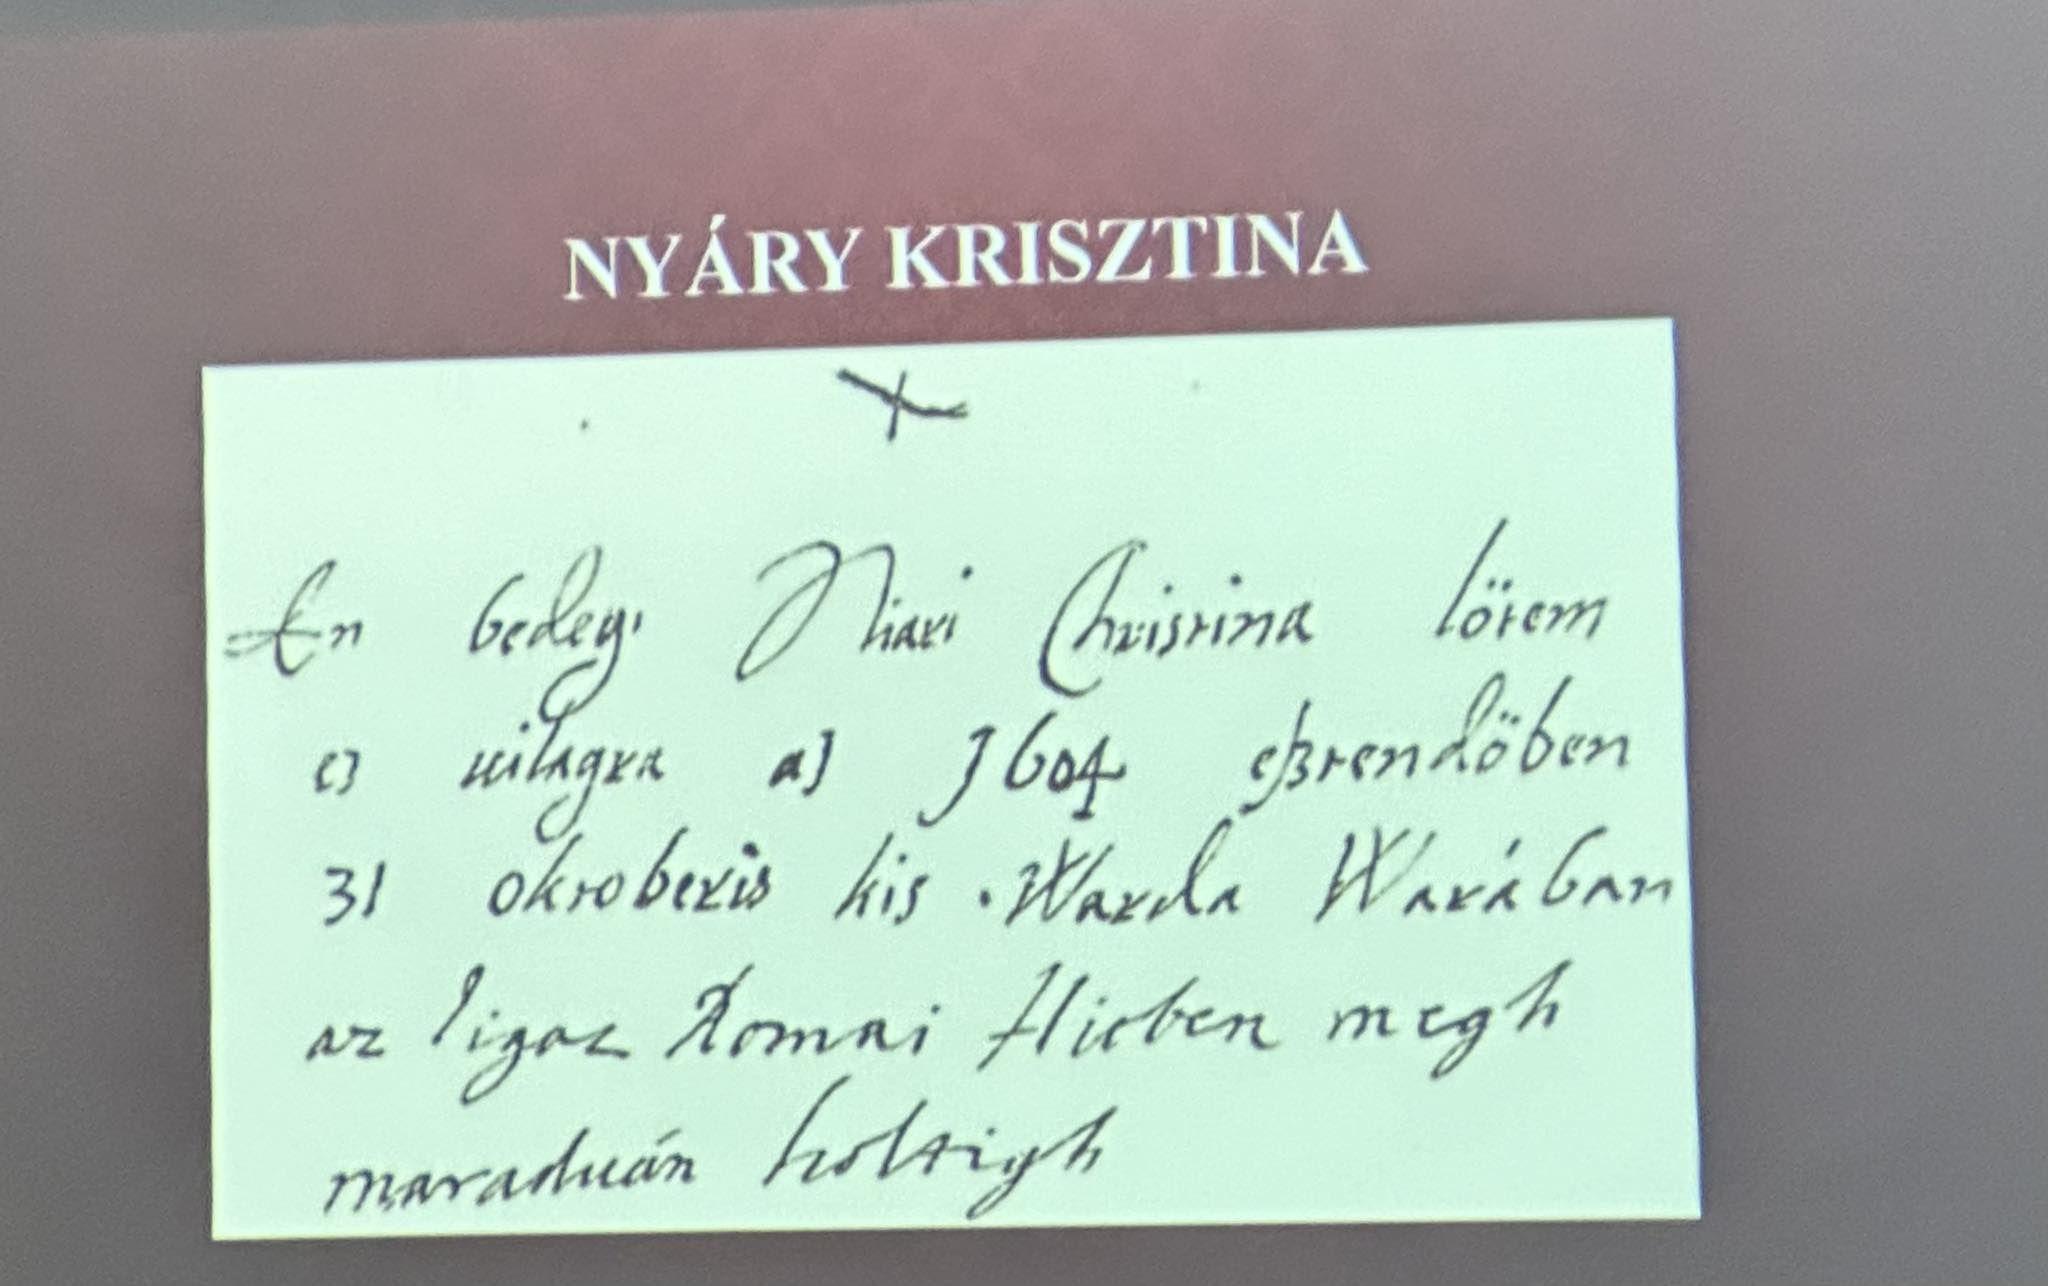 NYÁRY KRISZTINA
En bedegi Niari Christina löttem
ez uilagra az 1604 eßtendöben
31 oktoberis kis Warda Warában
az Igaz Romai Hitben megh
maraduán holtigh